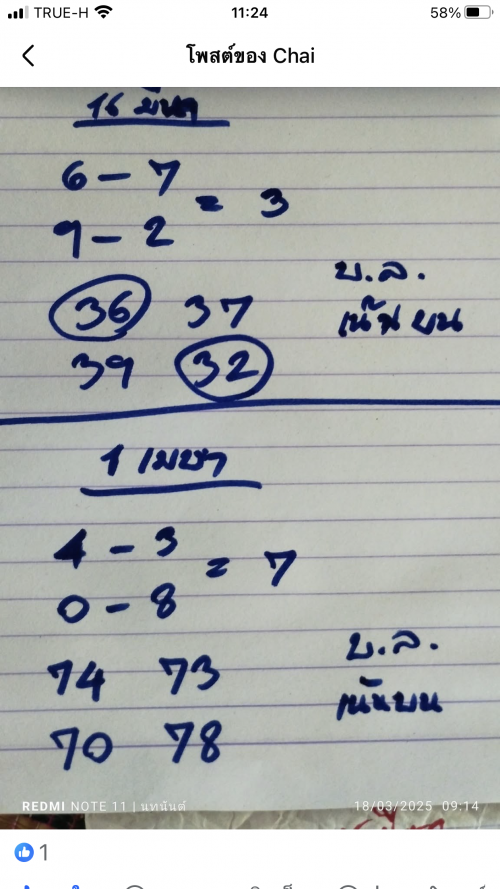 TRUE-H 11:24 58%
โพสต์ของ Chai
16 มีนา
6 – 7
= 3
9 – 2
บ.ล.
36 37
เน้น บน
39 32
1 เมษา
4 – 3
= 7
0 – 8
บ.ล.
74 73
เน้นบน
70 78
REDMI NOTE 11 | นทนันต์ 18/03/2025 09:14
1